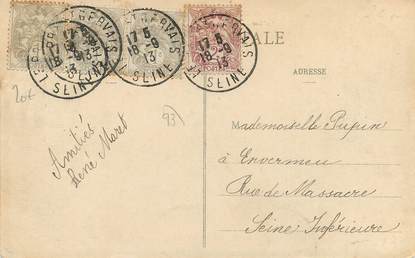 LE PRÉ-ST GERVAIS
17 5
18 -9
13
SEINE
LE PRÉ-ST GERVAIS
17 5
18 -9
13
SEINE
LE PRÉ-ST GERVAIS
17 5
18 -9
13
SEINE
ALE
ADRESSE
20€
93)
Amitiés
René Maret
Mademoiselle Pupin
à Envermeu
Rue de Massacre
Seine Inférieure